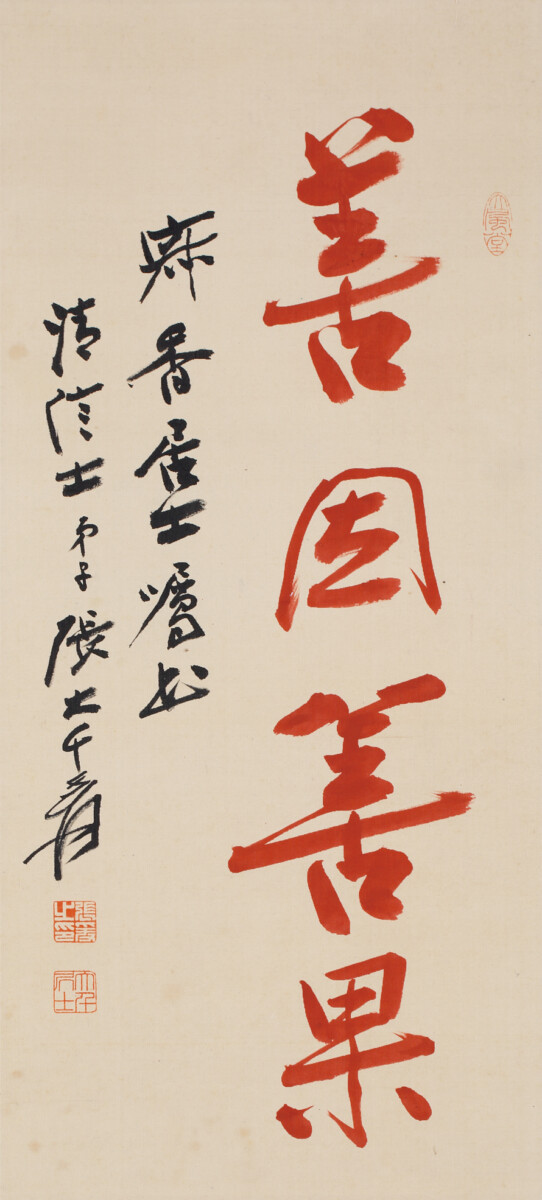 大風堂
善因善果
香居士囑書
清信士弟子張大千爰
張爰之印
大千居士